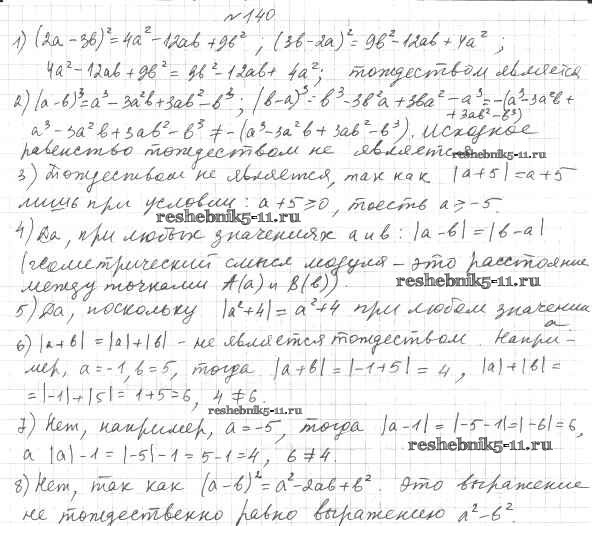 №140
1) (2a-3b)²=4a²-12ab+9b² ; (3b-2a)²=9b²-12ab+4a² ;
4a²-12ab+9b²=9b²-12ab+4a²; тождеством является
2) (a-b)³=a³-3a²b+3ab²-b³; (b-a)³=b³-3b²a+3ba²-a³=-(a³-3a²b+
+3ab²-b³)
a³-3a²b+3ab²-b³≠-(a³-3a²b+3ab²-b³). Исходное
равенство тождеством не является.
reshebnik5-11.ru
3) Тождеством не является, так как |a+5|=a+5
лишь при условии: a+5≥0, тоесть a≥-5.
reshebnik5-11.ru
4) Да, при любых значениях a и b: |a-b|=|b-a|
(геометрический смысл модуля - это расстояние
между точками A(a) и B(b)).
reshebnik5-11.ru
5) Да, поскольку |a²+4|=a²+4 при любом значении
a
6) |a+b|=|a|+|b| - не является тождеством. Напри-
мер, a=-1, b=5, тогда |a+b|=|-1+5|=4, |a|+|b|=
=|-1|+|5|=1+5=6, 4≠6.
reshebnik5-11.ru
7) Нет, например, a=-5, тогда |a-1|=|-5-1|=|-6|=6,
reshebnik5-11.ru
а |a|-1=|-5|-1=5-1=4, 6≠4.
8) Нет, так как (a-b)²=a²-2ab+b². Это выражение
не тождественно равно выражению a²-b².